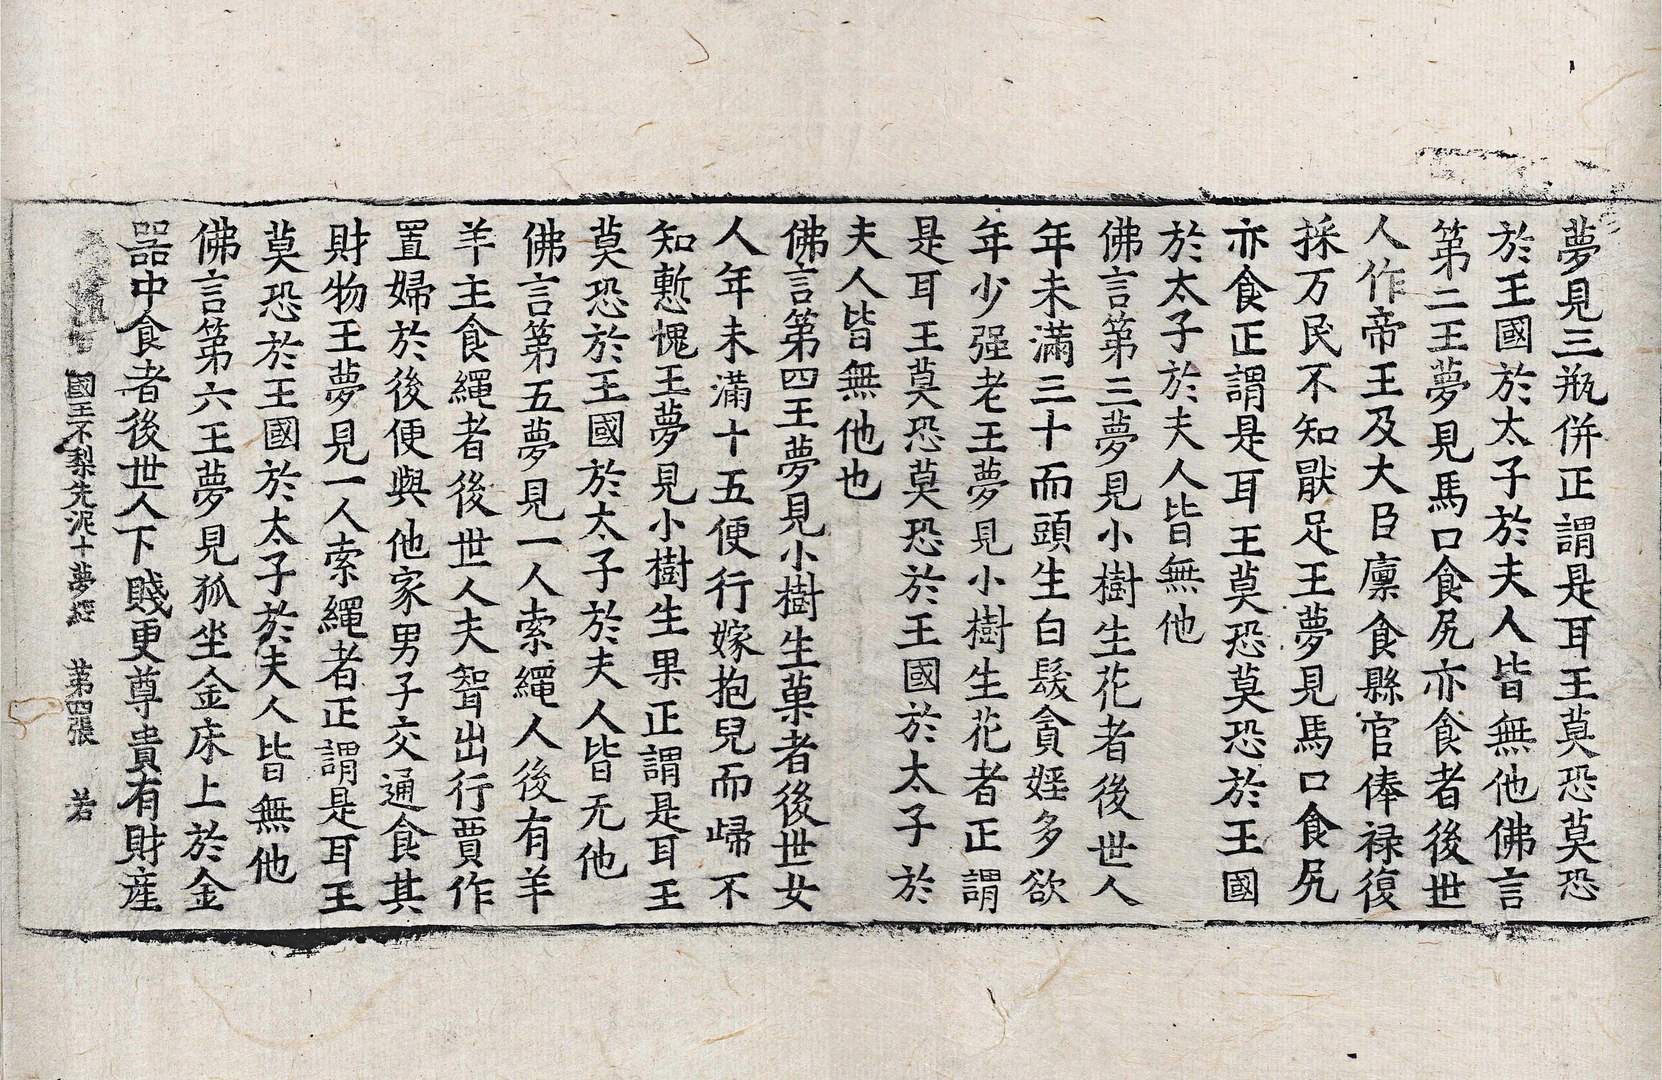 夢見三瓶併正謂是耳王莫恐莫恐
於王國於太子於夫人皆無他佛言
第二王夢見馬口食尻亦食者後世
人作帝王及大臣廩食縣官俸禄復
採万民不知猒足王夢見馬口食尻
亦食正謂是耳王莫恐莫恐於王國
於太子於夫人皆無他
佛言第三夢見小樹生花者後世人
年未滿三十而頭生白髮貪婬多欲
年少强老王夢見小樹生花者正謂
是耳王莫恐莫恐於王國於太子於
夫人皆無他也
佛言第四王夢見小樹生菓者後世女
人年未滿十五便行嫁抱兒而歸不
知慙愧王夢見小樹生果正謂是耳王
莫恐於王國於太子於夫人皆无他
佛言第五夢見一人索繩人後有羊
羊主食繩者後世人夫聟出行賈作
置婦於後便與他家男子交通食其
財物王夢見一人索繩者正謂是耳王
莫恐於王國於太子於夫人皆無他
佛言第六王夢見狐坐金床上於金
器中食者後世人下賤更尊貴有財産
國王不梨先泥十夢經 第四張 若